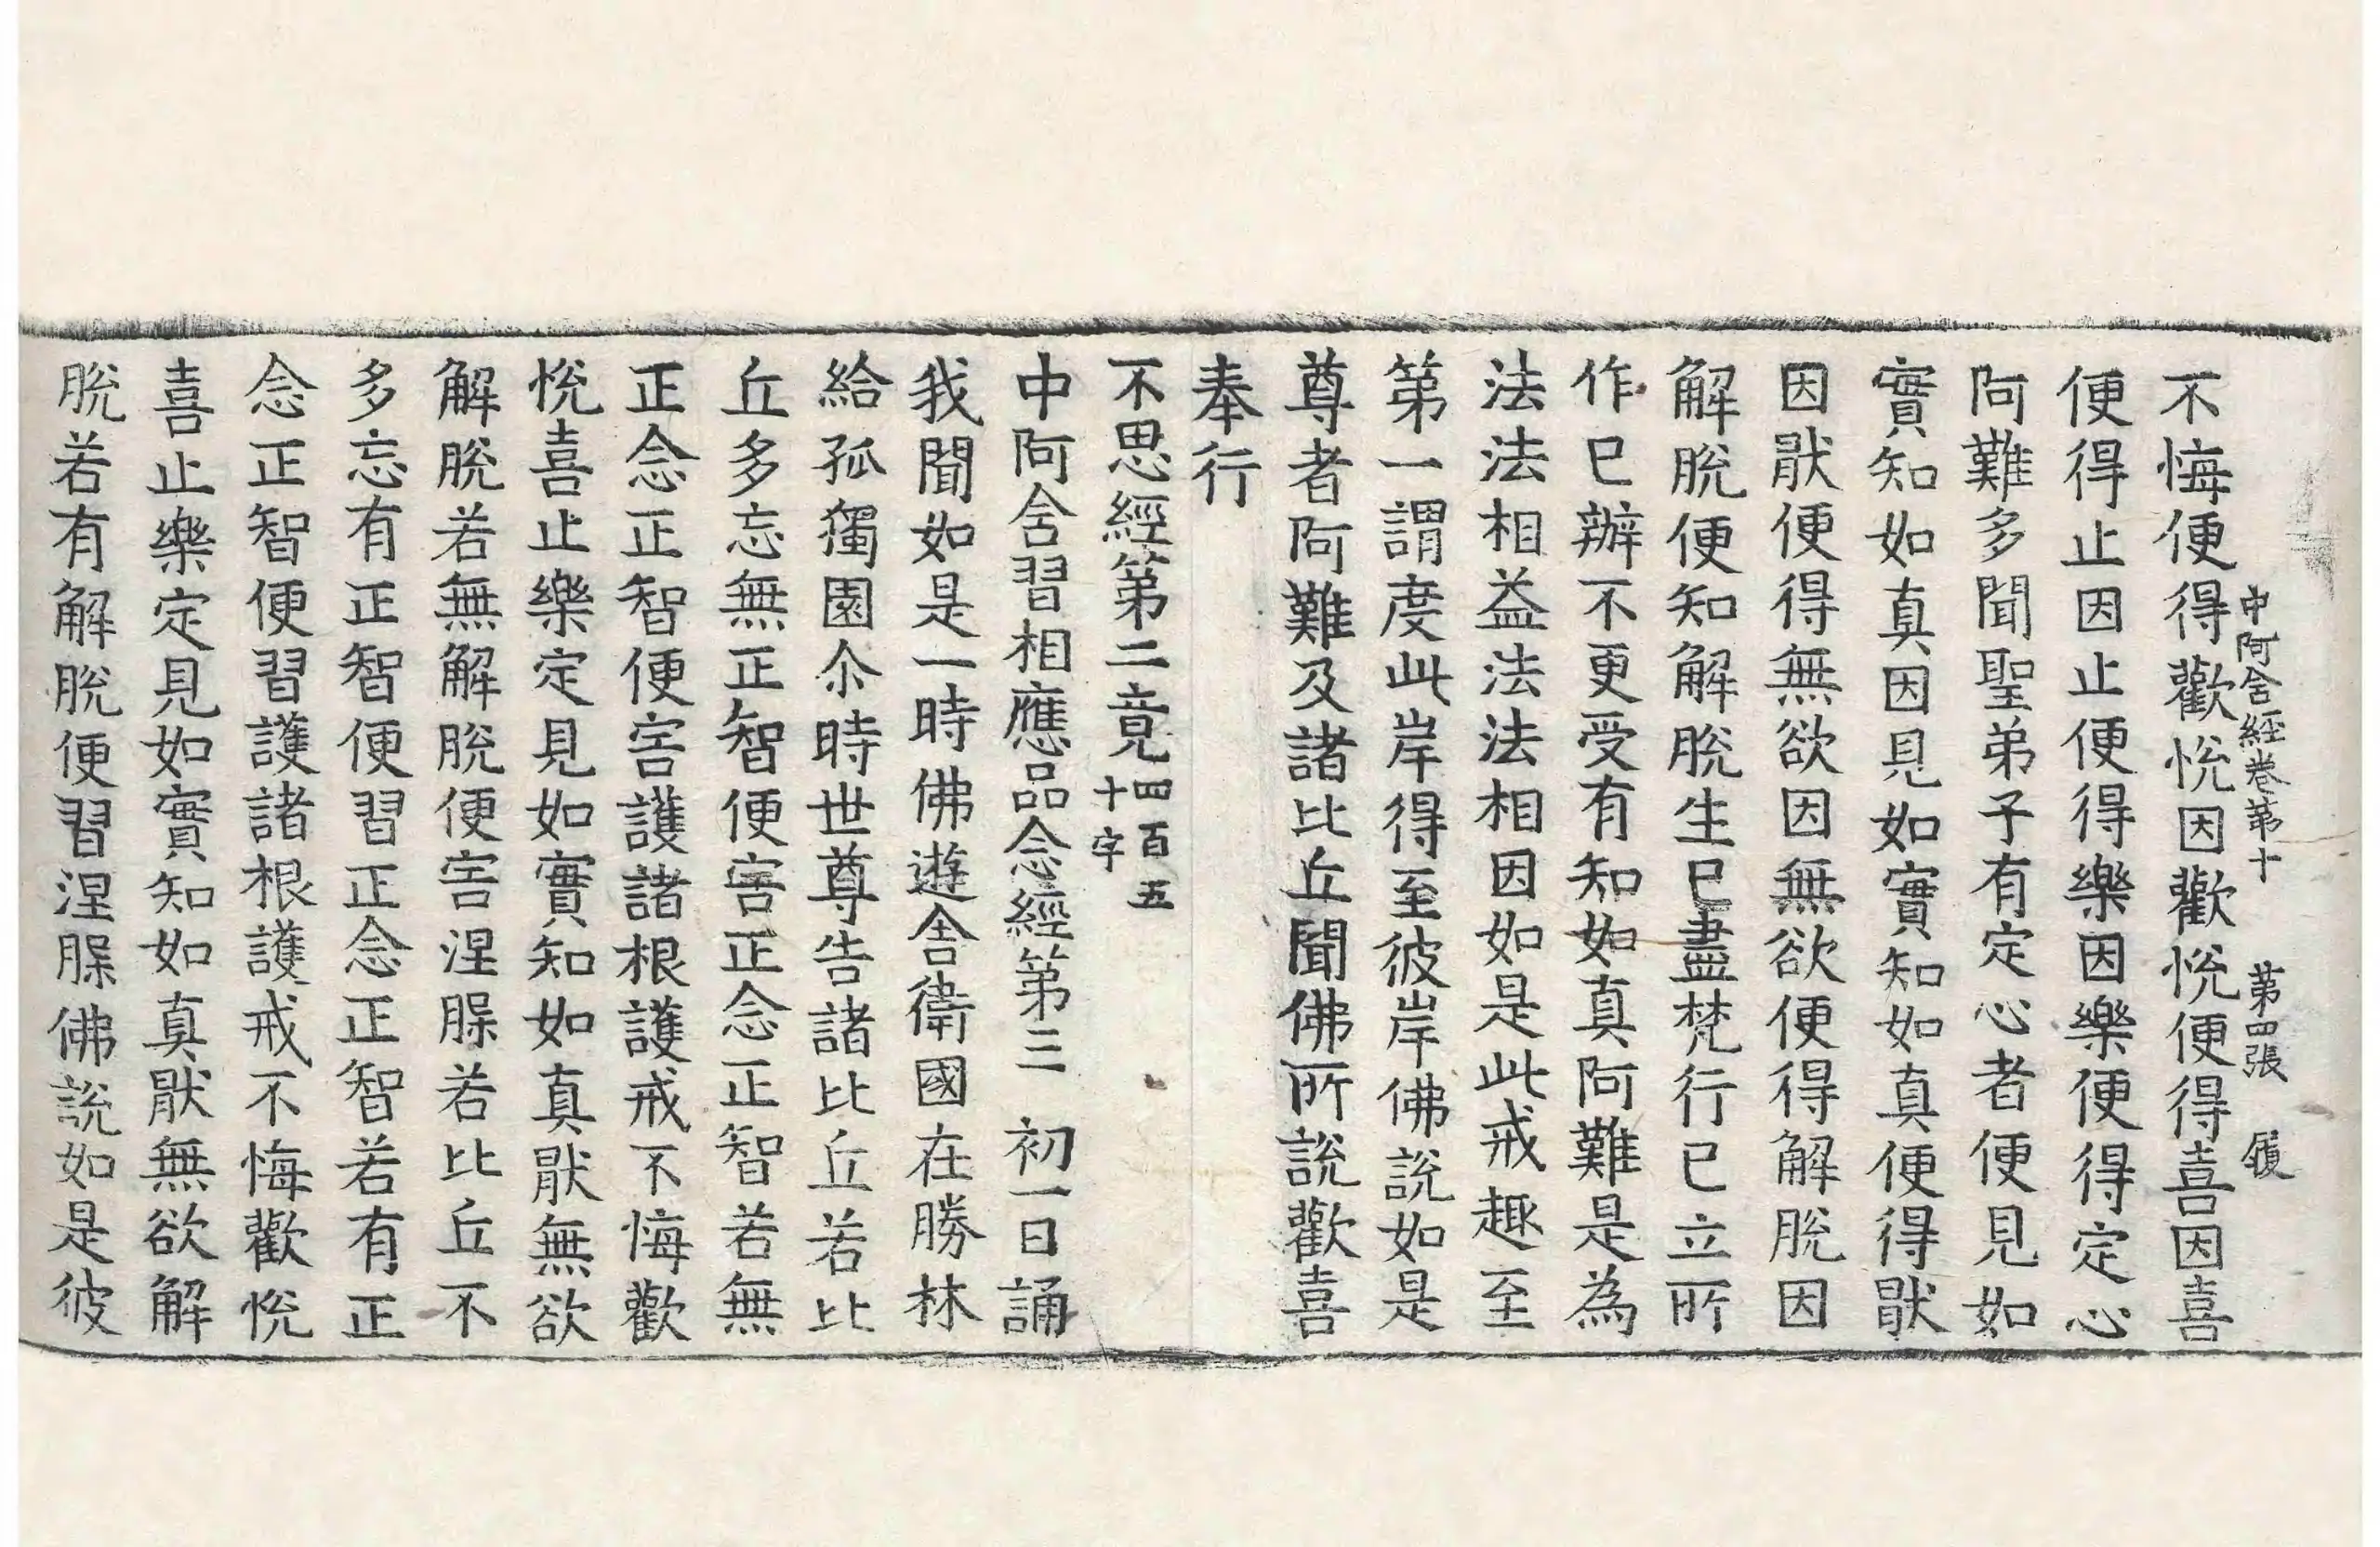 中阿含經卷第十 第四張 履
不悔便得歡恱因歡恱便得喜因喜
便得止因止便得樂因樂便得定心
阿難多聞聖弟子有定心者便見如
實知如真因見如實知如真便得猒
因猒便得無欲因無欲便得解脫因
解脫便知解脫生已盡梵行已立所
作已辦不更受有知如真阿難是為
法法相益法法相因如是此戒趣至
第一謂度此岸得至彼岸佛說如是
尊者阿難及諸比丘聞佛所說歡喜
奉行
不思經第二竟四百五十字
中阿含習相應品念經第三 初一日誦
我聞如是一時佛遊舍衛國在勝林
給孤獨園尒時世尊告諸比丘若比
丘多忘無正智便害正念正智若無
正念正智便害護諸根護戒不悔歡
恱喜止樂定見如實知如真猒無欲
解脫若無解脫便害涅槃若比丘不
多忘有正智便習正念正智若有正
念正智便習護諸根護戒不悔歡恱
喜止樂定見如實知如真猒無欲解
脫若有解脫便習涅槃佛說如是彼